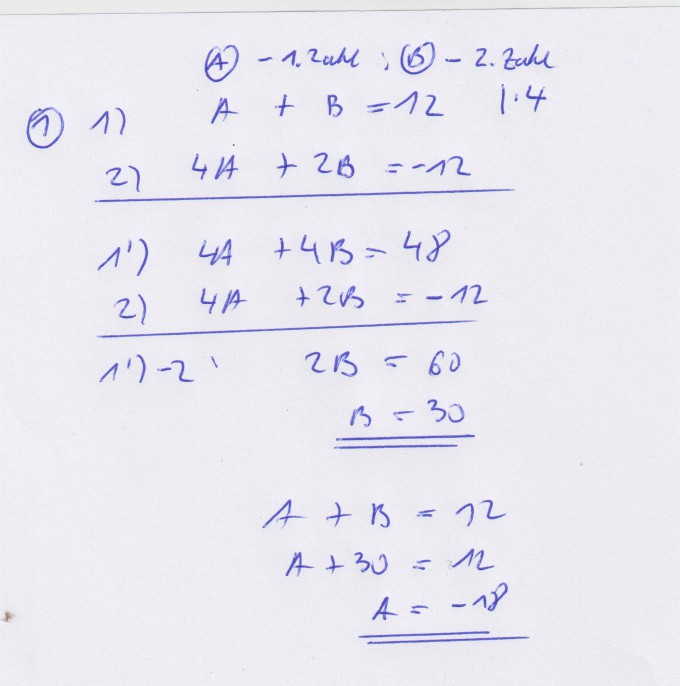 A - 1. Zahl ; B - 2. Zahl
1 1) A + B = 12 | · 4
2) 4A + 2B = -12
1') 4A + 4B = 48
2) 4A + 2B = -12
1') - 2 ' 2B = 60
B = 30
A + B = 12
A + 30 = 12
A = -18